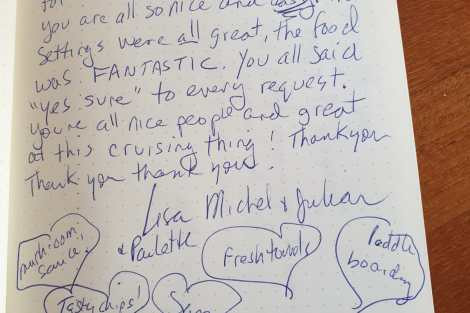 for
you are all so nice and
settings were all great, the food
was FANTASTIC. You all said
"yes sure" to every request.
You're all nice people and great
at this cruising thing! Thankyou
Thank you thank you!
Lisa Michel & Julian
& Paulette
mushroom
sauce
Fresh towels
Paddle
boarding
Tasty chips!